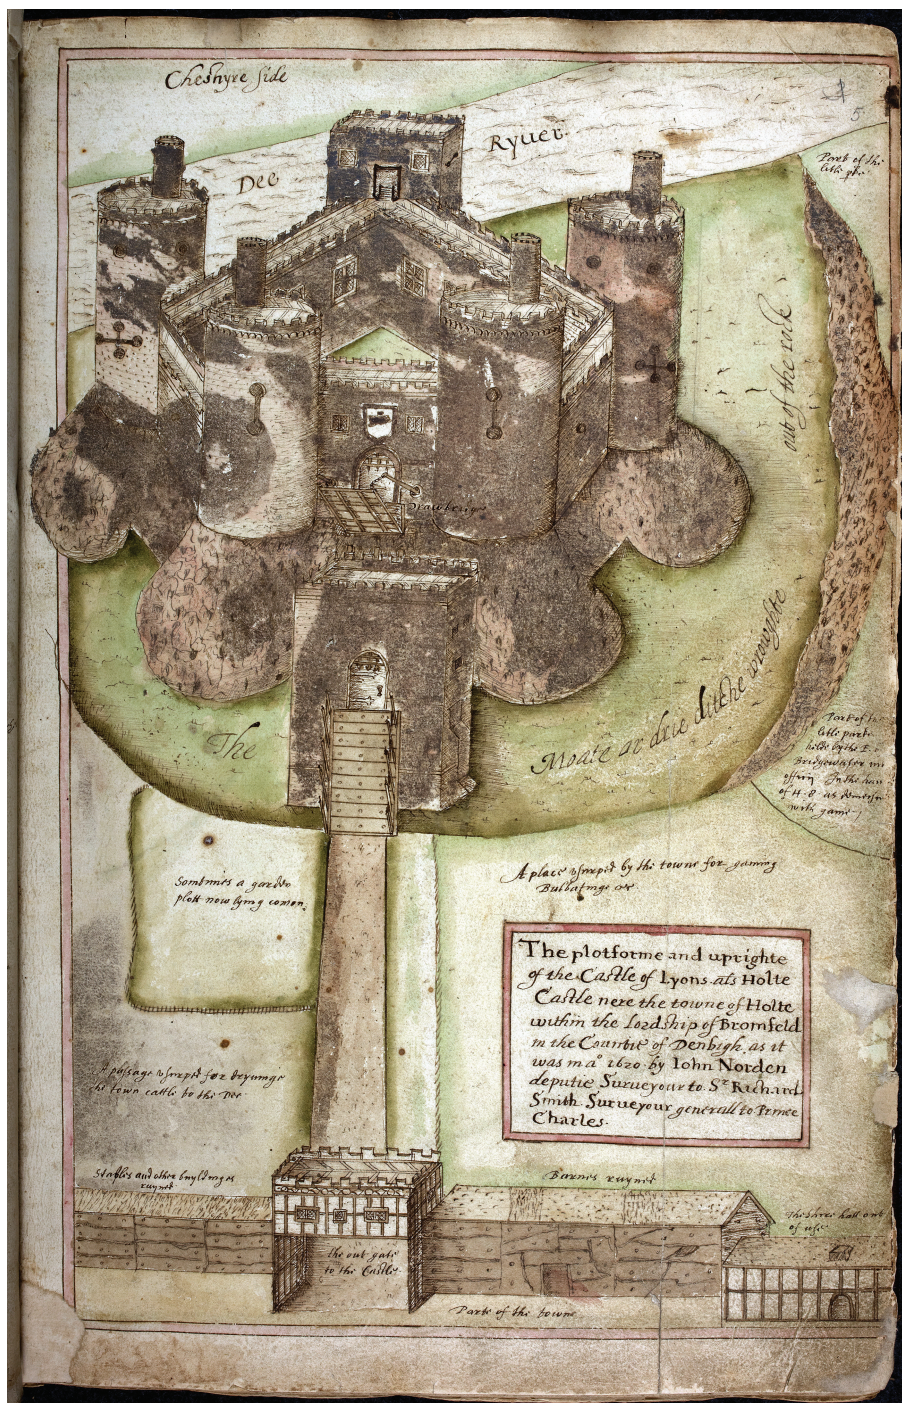 Cheshyre side
5
Ryuer.
Dee
Part of the
litle
out of the rock
Drawbrige
The Moate or drie ditche wrowghte
Part of the
litle parke
helde by the E.
Bridgewater
of H. 8
with game
Somtimes a garden
plott now lying comon.
A place vsurped by the towne for gaming
Bulbatinge &c
The plotforme and uprighte
of the Castle of Lyons als Holte
Castle nere the towne of Holte
within the Lordship of Bromfeld
in the Countie of Denbigh, as it
was in ao 1620. by Iohn Norden
deputie Surueyour to Sr Richard
Smith. Surueyour generall to Prince
Charles.
A passage vsurped for dryuinge
the town cattle to the Dee
Stables and other buyldinges
ruyned
Barnes ruyned
The shire hall out
of vse
the out gate
to the Castle
Parte of the towne